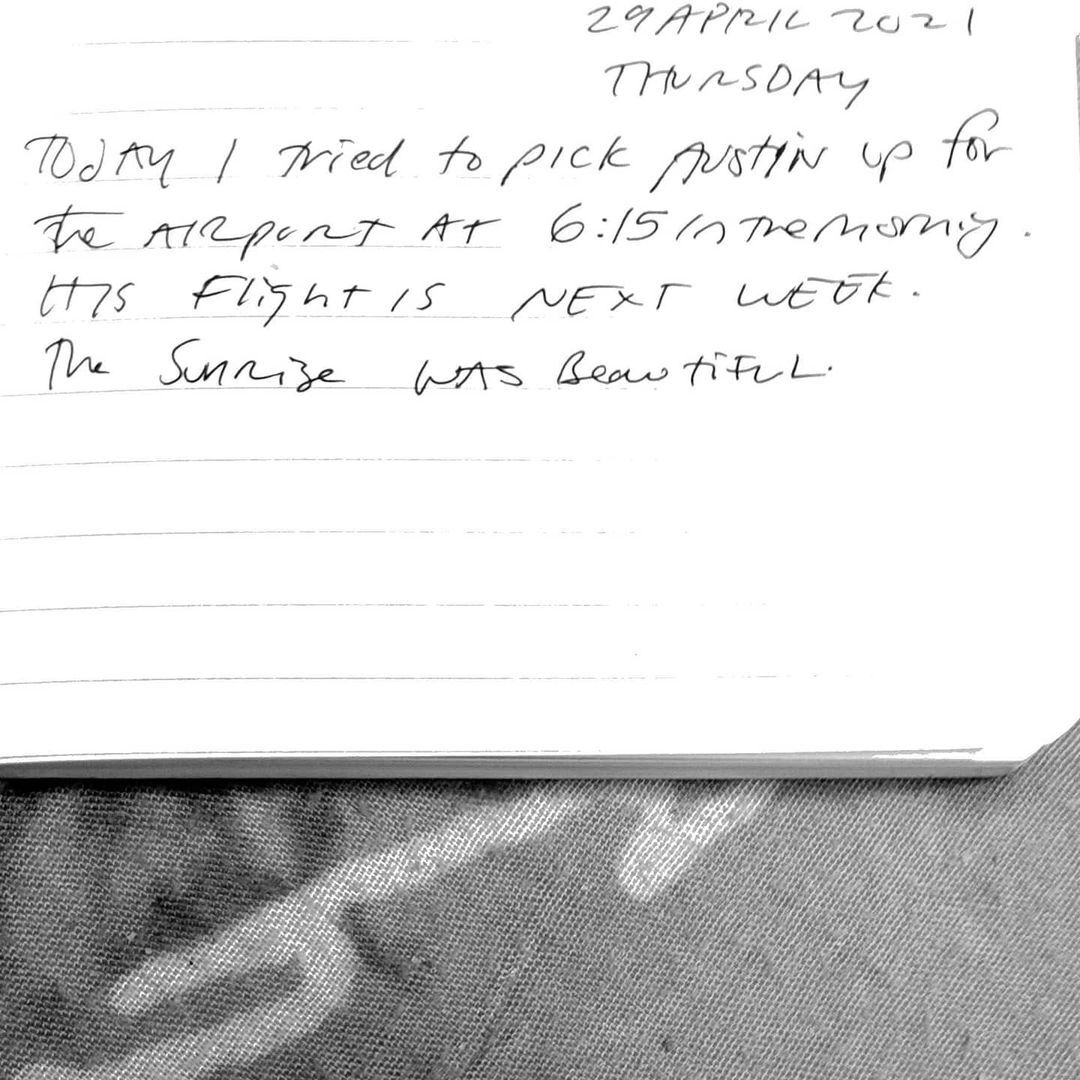 29 APRIL 2021
THURSDAY
TOdAY I tried to pick AUSTIN up for
the AIRport At 6:15 in the morning.
HIS Flight IS NEXT WEEK.
The Sunrise WAS BeautiFUL.